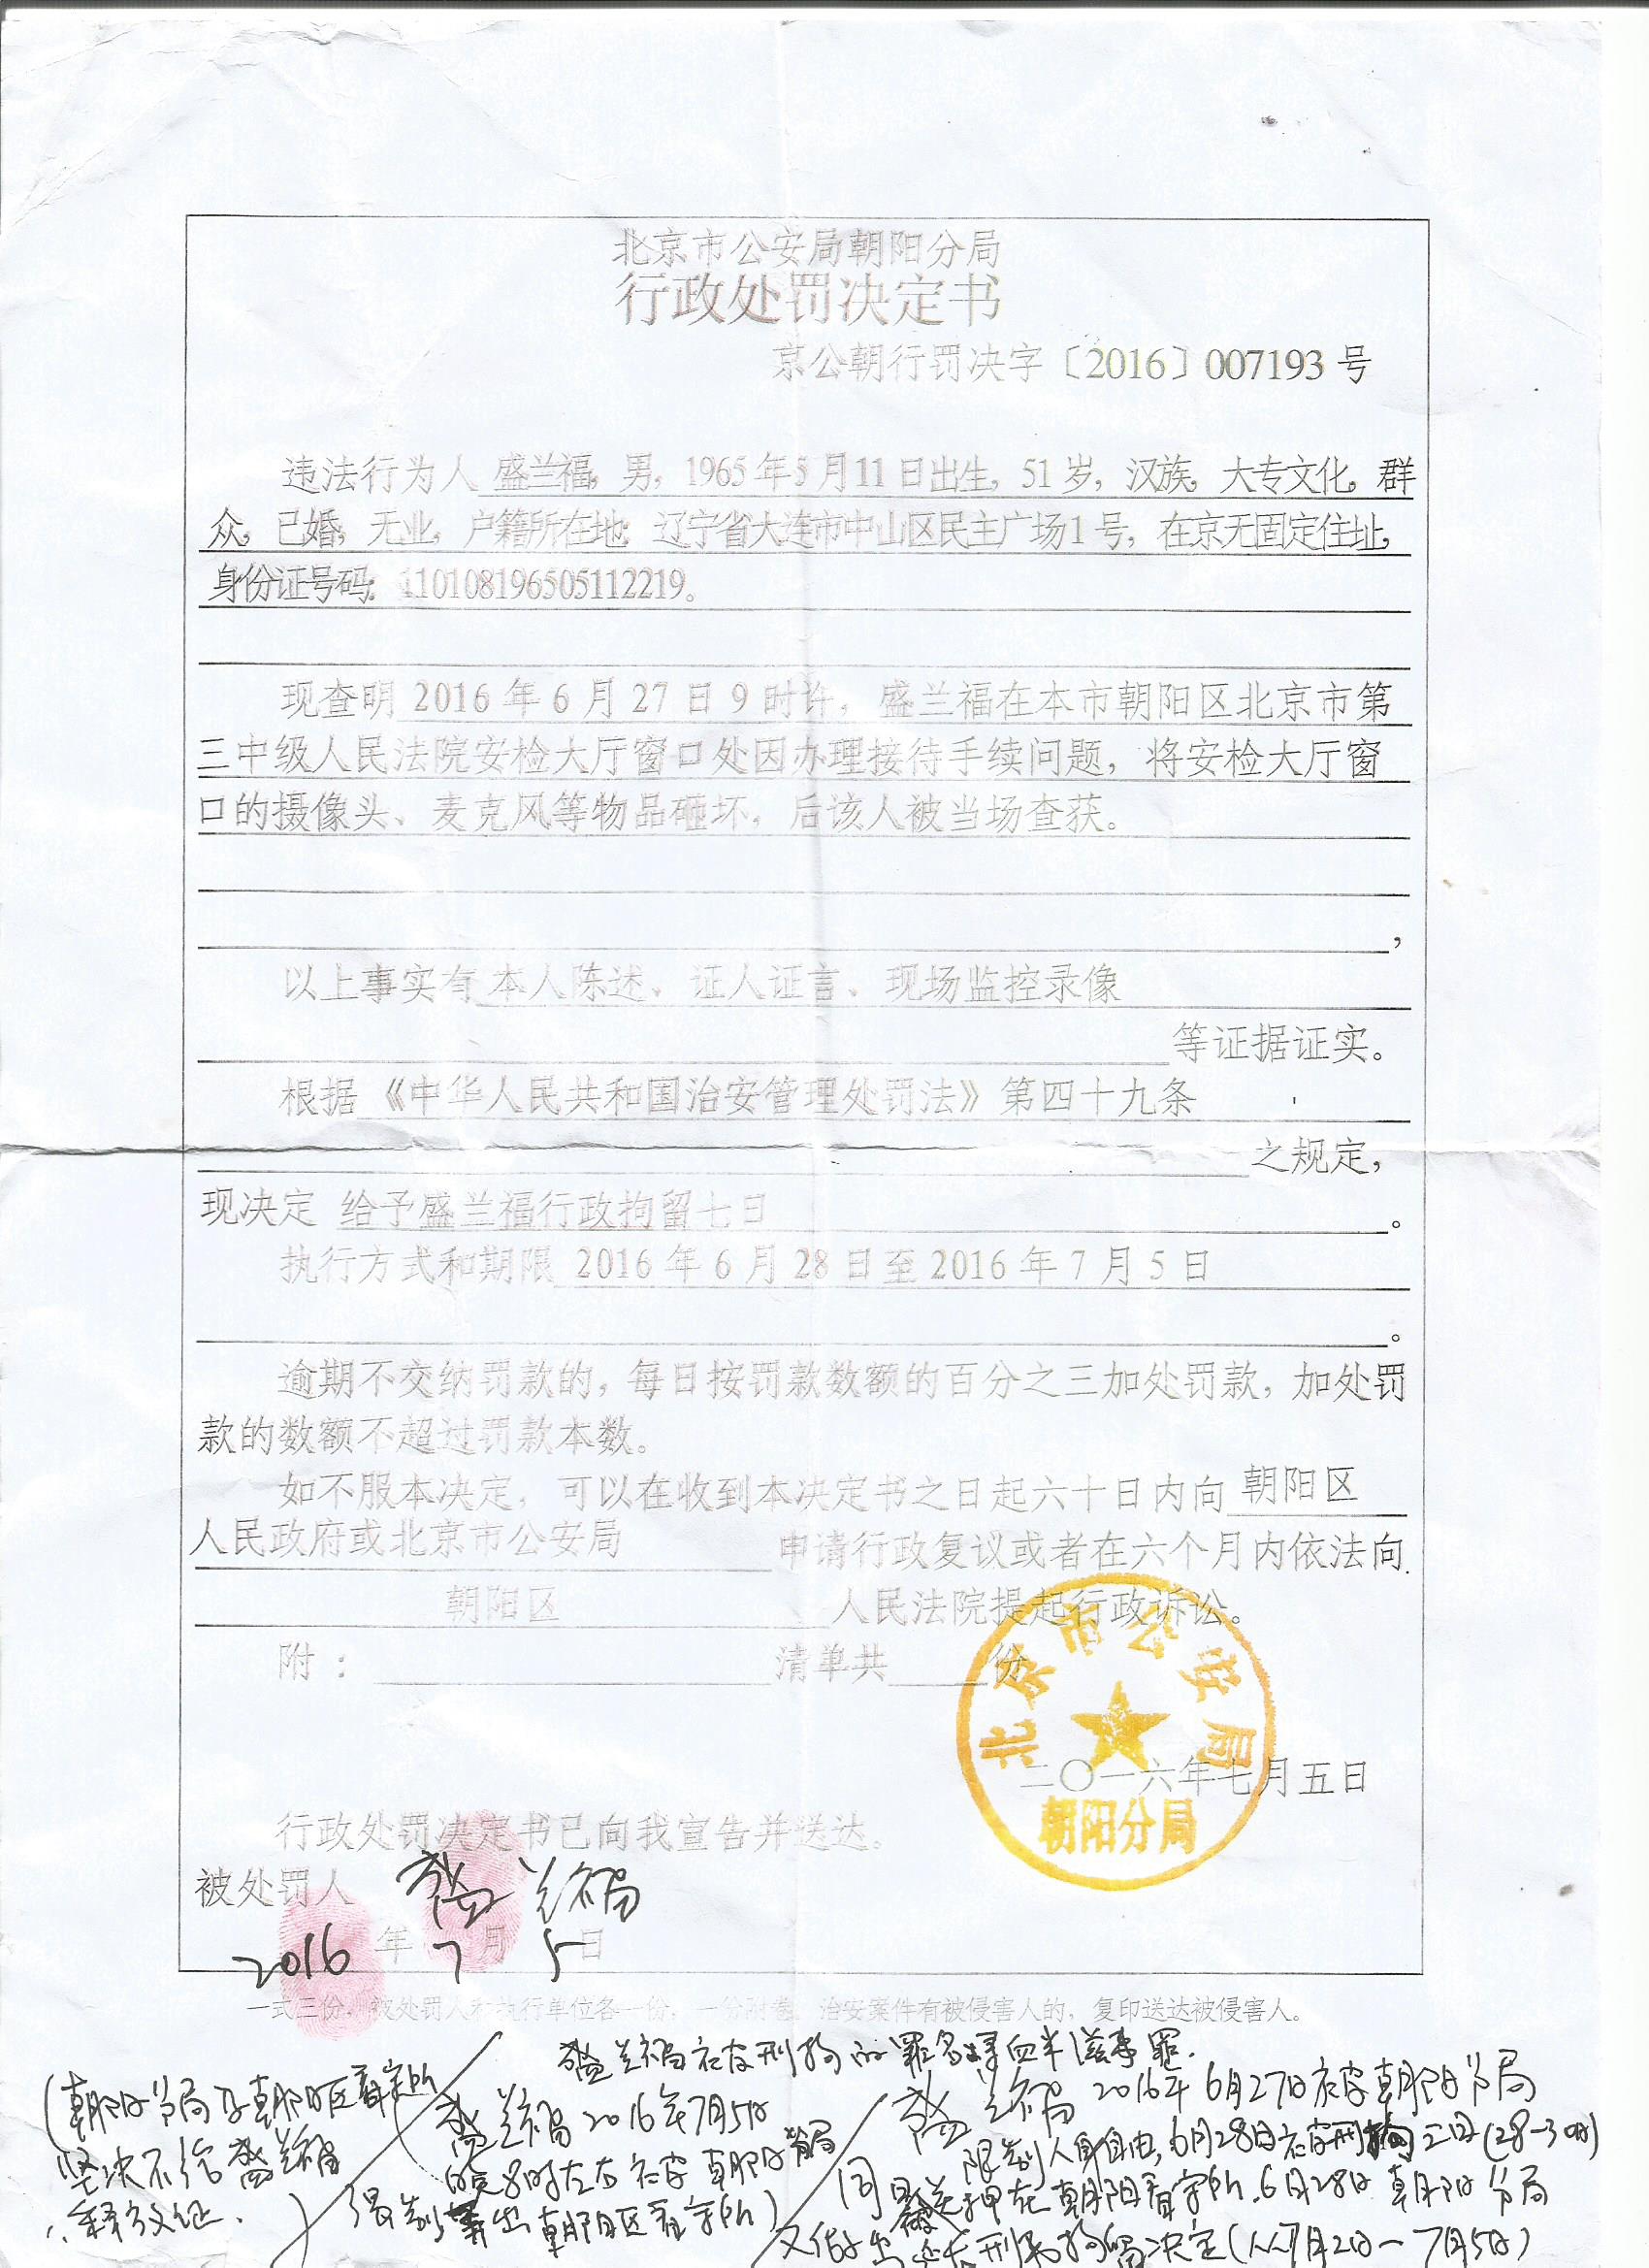 北京市公安局朝阳分局
行政处罚决定书
京公朝行罚决字〔2016〕007193号
违法行为人 盛兰福，男，1965年5月11日出生，51岁，汉族，大专文化，群
众，已婚，无业，户籍所在地：辽宁省大连市中山区民主广场1号，在京无固定住址，
身份证号码：110108196505112219。
现查明 2016年6月27日9时许，盛兰福在本市朝阳区北京市第
三中级人民法院安检大厅窗口处因办理接待手续问题，将安检大厅窗
口的摄像头、麦克风等物品砸坏，后该人被当场查获。
，
以上事实有 本人陈述、证人证言、现场监控录像
等证据证实。
根据《中华人民共和国治安管理处罚法》第四十九条
之规定，
现决定 给予盛兰福行政拘留七日 。
执行方式和期限 2016年6月28日至2016年7月5日
。
逾期不交纳罚款的，每日按罚款数额的百分之三加处罚款，加处罚
款的数额不超过罚款本数。
如不服本决定，可以在收到本决定书之日起六十日内向 朝阳区
人民政府或北京市公安局 申请行政复议或者在六个月内依法向
朝阳区 人民法院提起行政诉讼。
附： 清单共 份
北京市公安局
二〇一六年七月五日
朝阳分局
行政处罚决定书已向我宣告并送达。
被处罚人 盛兰福
2016年7月5日
一式三份，被处罚人和执行单位各一份，一份附卷。治安案件有被侵害人的，复印送达被侵害人。
盛兰福被刑拘的罪名寻衅滋事罪.
(朝阳分局及朝阳区看守所
坚决不给盛兰福
释放证.)
盛兰福2016年7月5日
晚8时左右被朝阳分局
强制弄出朝阳区看守所)
盛兰福2016年6月27日被朝阳分局
限制人身自由,6月28日被刑拘三日(28-30日)
同日送押在朝阳看守所.6月28日朝阳分局
又作出延长刑事拘留决定(从7月2日-7月5日)